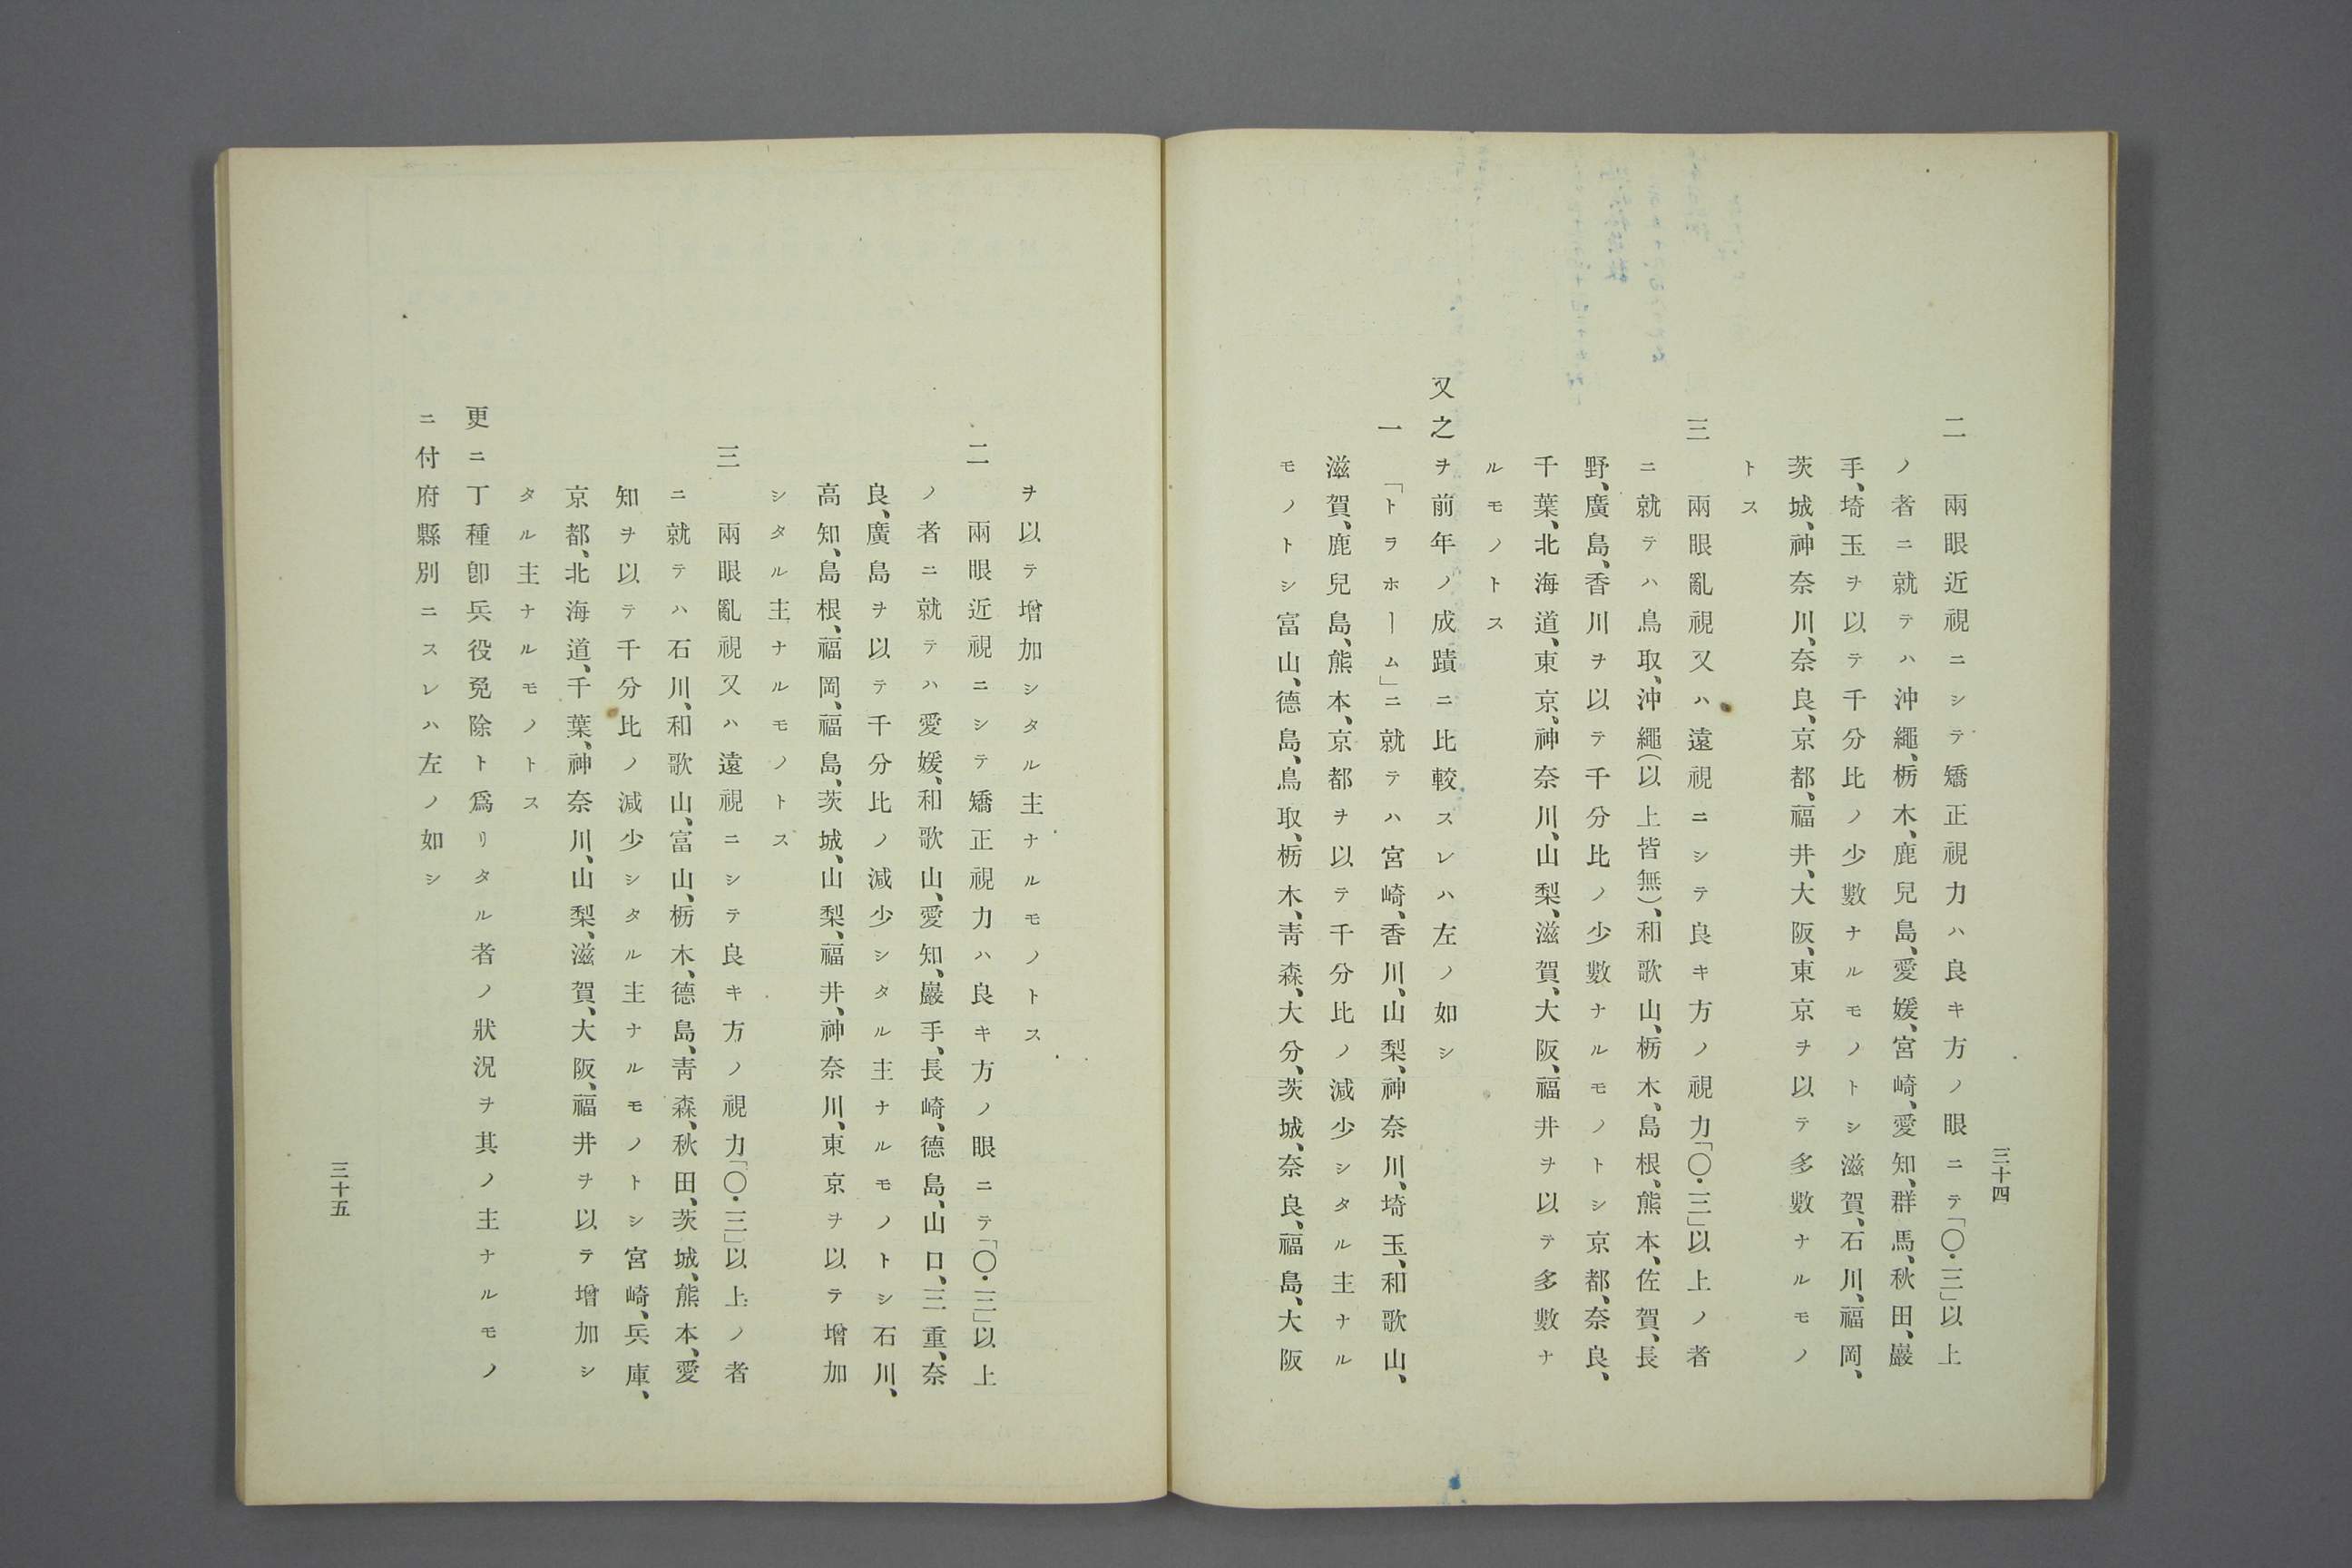 二　兩眼近視ニシテ矯正視力ハ良キ方ノ眼ニテ「〇・三」以上
ノ者ニ就テハ沖繩、栃木、鹿兒島、愛媛、宮崎、愛知、群馬、秋田、巖
手、埼玉ヲ以テ千分比ノ少數ナルモノトシ滋賀、石川、福岡、
茨城、神奈川、奈良、京都、福井、大阪、東京ヲ以テ多數ナルモノ
トス
三　兩眼亂視又ハ遠視ニシテ良キ方ノ視力「〇・三」以上ノ者
ニ就テハ鳥取、沖繩(以上皆無)、和歌山、栃木、島根、熊本、佐賀、長
野、廣島、香川ヲ以テ千分比ノ少數ナルモノトシ京都、奈良、
千葉、北海道、東京、神奈川、山梨、滋賀、大阪、福井ヲ以テ多數ナ
ルモノトス
又之ヲ前年ノ成蹟ニ比較スレハ左ノ如シ
一　「トラホーム」ニ就テハ宮崎、香川、山梨、神奈川、埼玉、和歌山、
滋賀、鹿兒島、熊本、京都ヲ以テ千分比ノ減少シタル主ナル
モノトシ富山、德島、鳥取、栃木、靑森、大分、茨城、奈良、福島、大阪
三十四
ヲ以テ增加シタル主ナルモノトス
二　兩眼近視ニシテ矯正視力ハ良キ方ノ眼ニテ「〇・三」以上
ノ者ニ就テハ愛媛、和歌山、愛知、巖手、長崎、德島、山口、三重、奈
良、廣島ヲ以テ千分比ノ減少シタル主ナルモノトシ石川、
高知、島根、福岡、福島、茨城、山梨、福井、神奈川、東京ヲ以テ增加
シタル主ナルモノトス
三　兩眼亂視又ハ遠視ニシテ良キ方ノ視力「〇・三」以上ノ者
ニ就テハ石川、和歌山、富山、栃木、德島、靑森、秋田、茨城、熊本、愛
知ヲ以テ千分比ノ減少シタル主ナルモノトシ宮崎、兵庫、
京都、北海道、千葉、神奈川、山梨、滋賀、大阪、福井ヲ以テ增加シ
タル主ナルモノトス
更ニ丁種卽兵役免除ト爲リタル者ノ狀況ヲ其ノ主ナルモノ
ニ付府縣別ニスレハ左ノ如シ
三十五